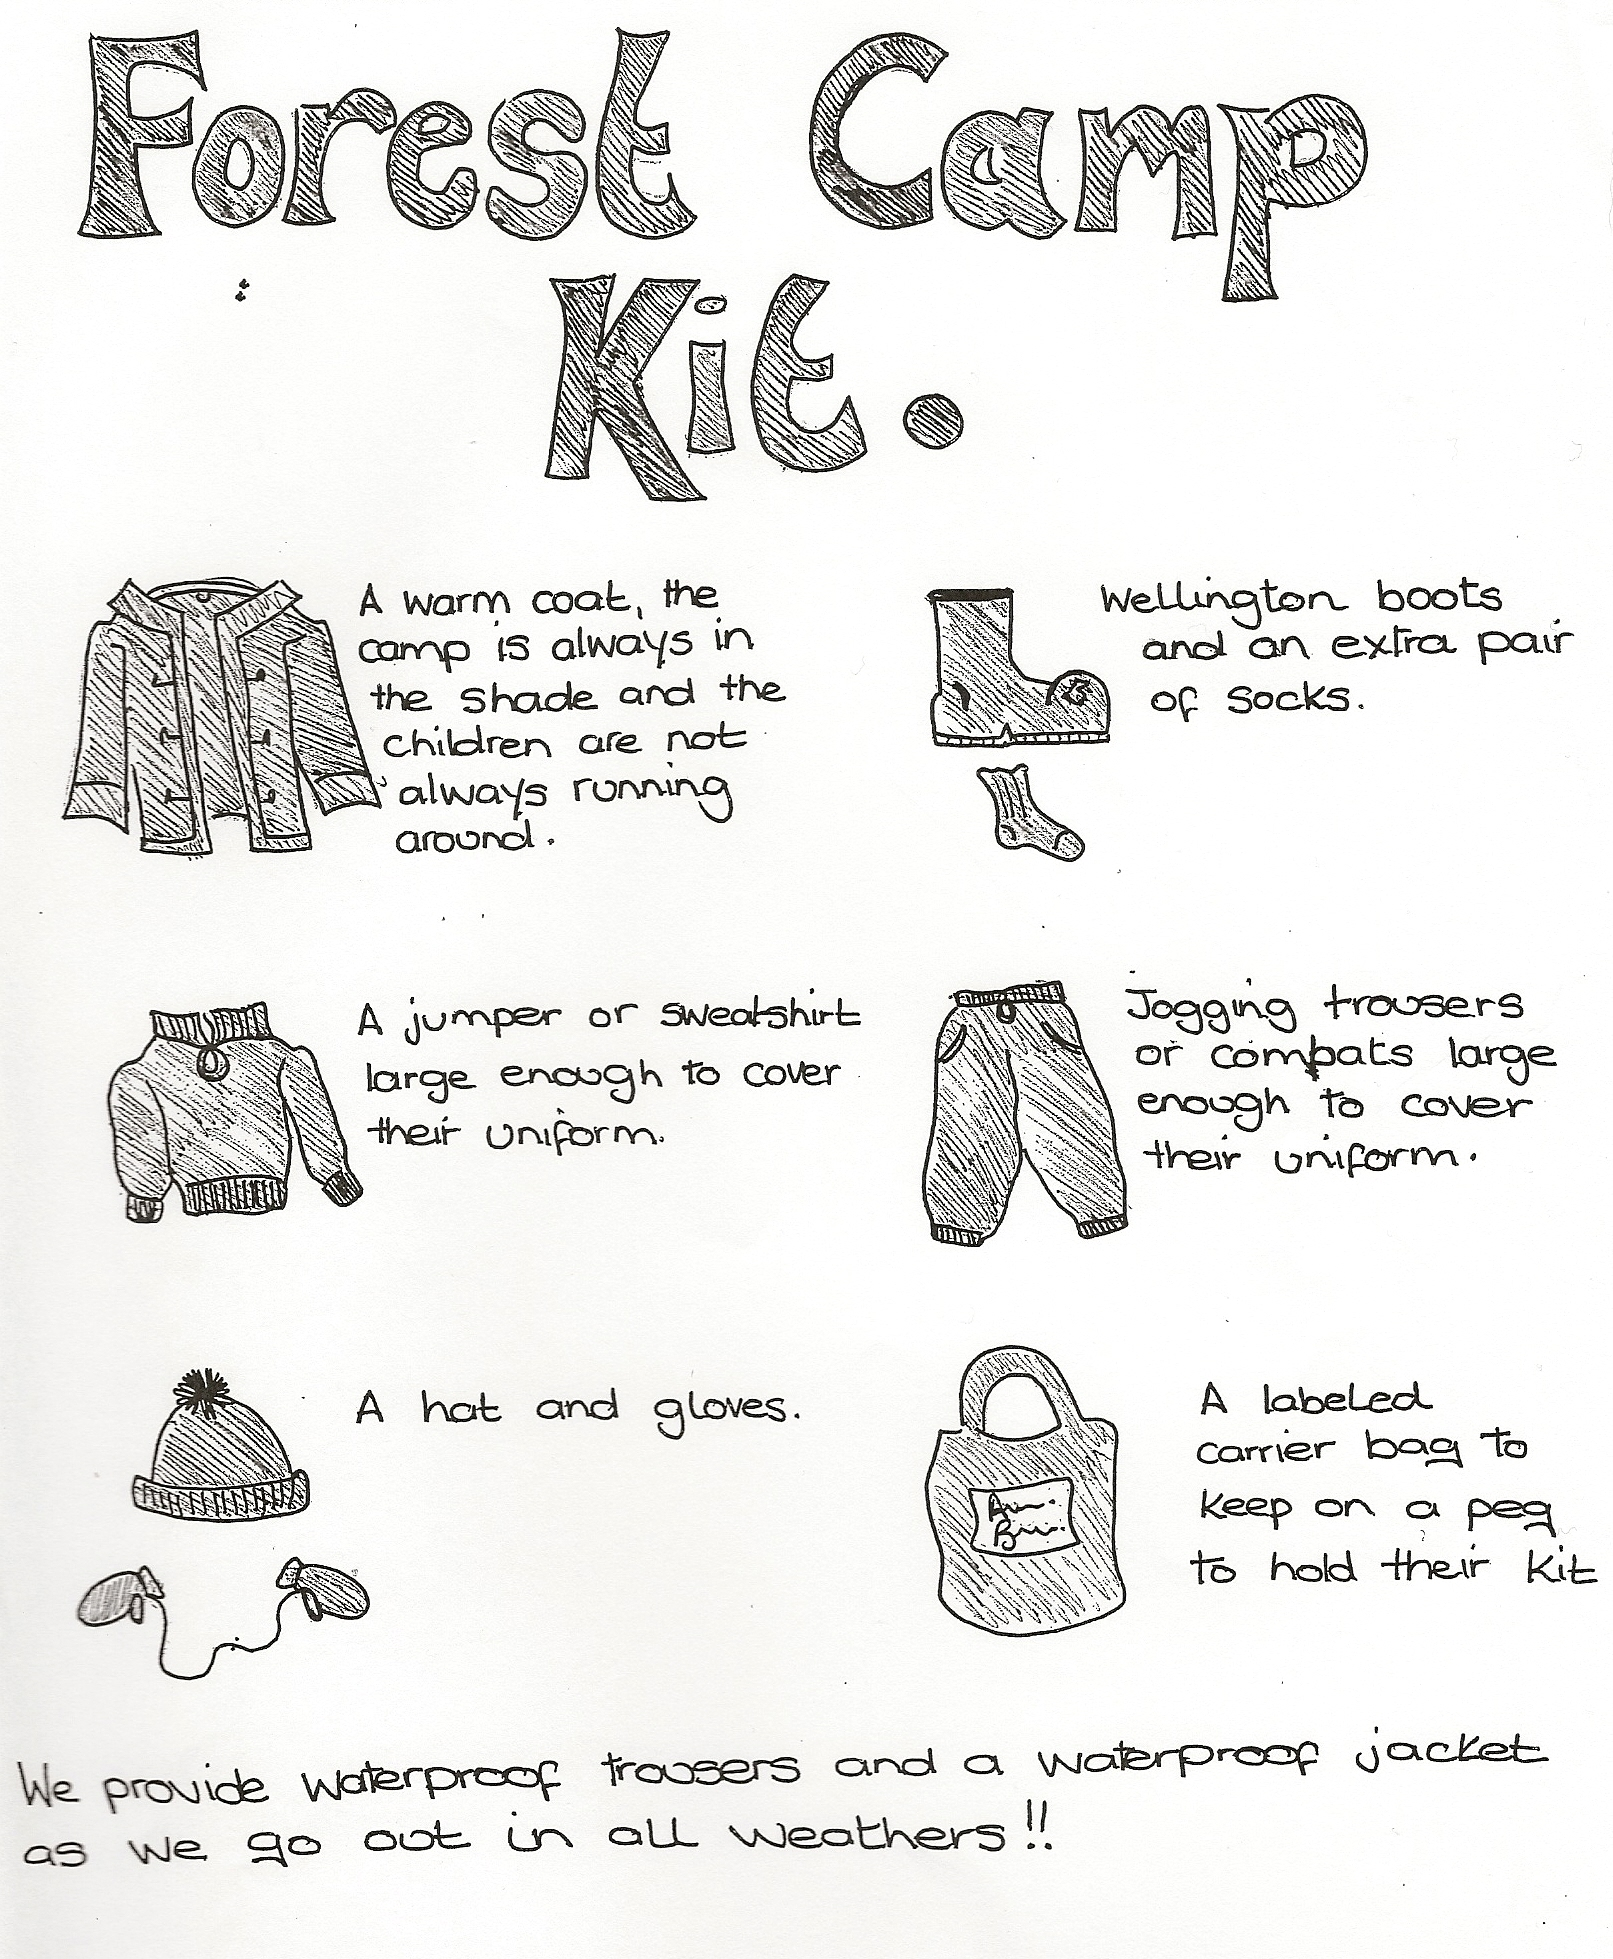 Forest Camp
Kit.
A warm coat, the
camp is always in
the shade and the
children are not
always running
around.
Wellington boots
and an extra pair
of socks.
A jumper or sweatshirt
large enough to cover
their uniform.
Jogging trousers
or combats large
enough to cover
their uniform.
A hat and gloves.
A labeled
carrier bag to
keep on a peg
to hold their kit
We provide waterproof trousers and a waterproof jacket
as we go out in all weathers!!